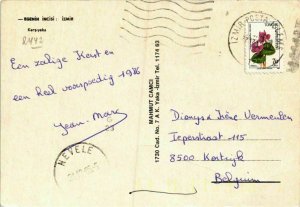 EGENİN İNCİSİ : İZMİR
Karşıyaka
Een zalige Kerst en
een heel voorspoedig 1986
Jean-Marc
MAHMUT CAMCI
1730 Cad. No. 7 A K. Yaka-İzmir Tel. 1174 63
İZMİR
Dionys & Irène Vermeulen
Ieperstraat 115
8500 Kortrijk
Belgium
HEVELE